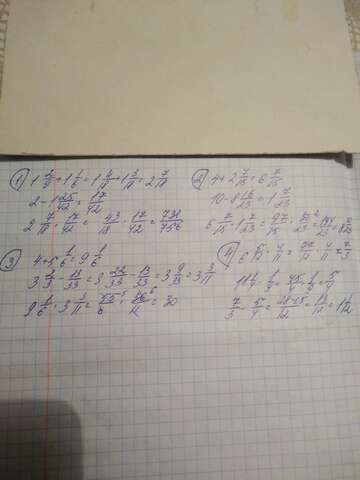 1) 1 2/9 + 1 1/6 = 1 4/18 + 1 3/18 = 2 7/18
2 - 1 25/42 = 17/42
2 7/18 · 17/42 = 43/18 · 17/42 = 731/756
2) 4 + 2 7/15 = 6 7/15
10 - 8 16/23 = 1 7/23
6 7/15 · 1 7/23 = 97/15 · 30/23 = 194/23 =
3) 4 + 5 1/6 = 9 1/6
3 2/3 - 13/33 = 3 22/33 - 13/33 = 3 9/33 = 3 3/11
9 1/6 · 3 3/11 = 55/6 · 36/11 = 30
4) 6 5/12 · 4/11 = 77/12 · 4/11 = 7/3
11 1/4 · 1/9 = 45/4 · 1/9 = 5/4
7/3 - 5/4 = 28-15/12 = 13/12 = 1 1/12